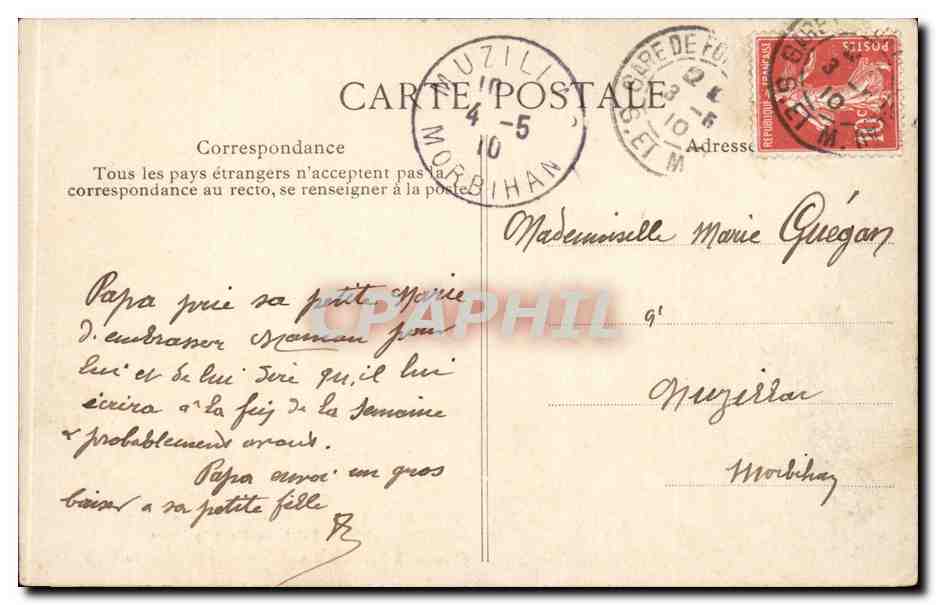 CARTE POSTALE
Correspondance
Tous les pays étrangers n'acceptent pas la
correspondance au recto, se renseigner à la poste.
Papa prie sa petite Marie
d'embrasser Maman pour
lui et de lui dire qu'il lui
écrira à la fin de la semaine
& probablement avant.
Papa envoi un gros
baiser a sa petite fille
MUZILLAC
10
4 - 5
10
MORBIHAN
GARE DE
3 - 5
10
S. ET M.
REPUBLIQUE FRANÇAISE
POSTES
10c
GARE
3
10
S. ET M.
Adresse
Mademoiselle Marie Guégan
à
Muzillac
Morbihan
CPAPHIL